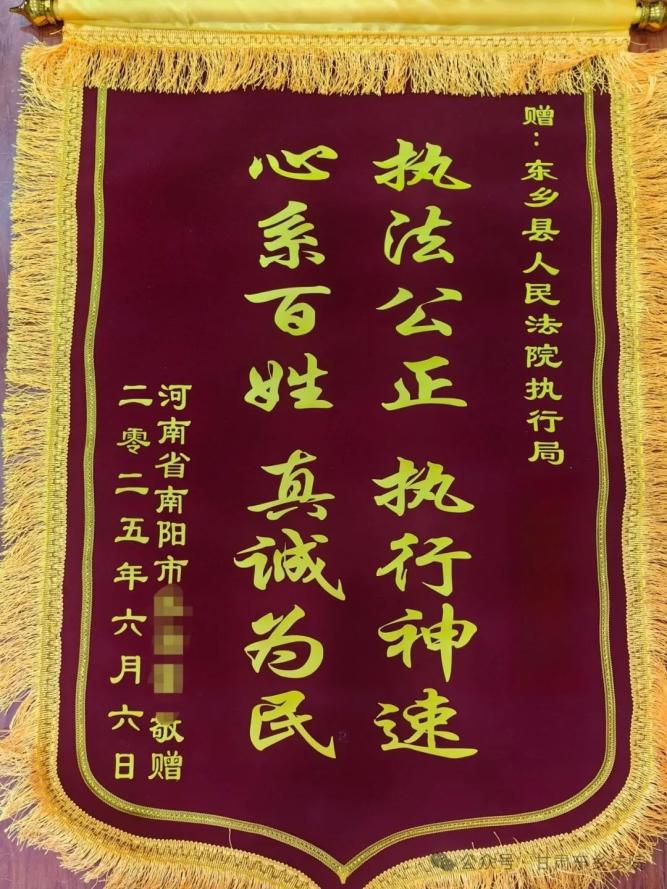 赠：东乡县人民法院执行局
执法公正 执行神速
心系百姓 真诚为民
河南省南阳市 敬赠
二零二五年六月六日
公众号·甘肃东乡法院